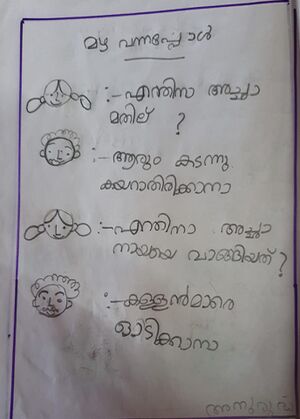 മഴ വന്നപ്പോൾ
:-എന്തിനാ അച്ഛാ
മതില് ?
:- ആരും കടന്നു
കയറാതിരിക്കാനാ
:-എന്തിനാ അച്ഛാ
നായയെ വാങ്ങിയത് ?
:-കള്ളൻമാരെ
ഓടിക്കാനാ